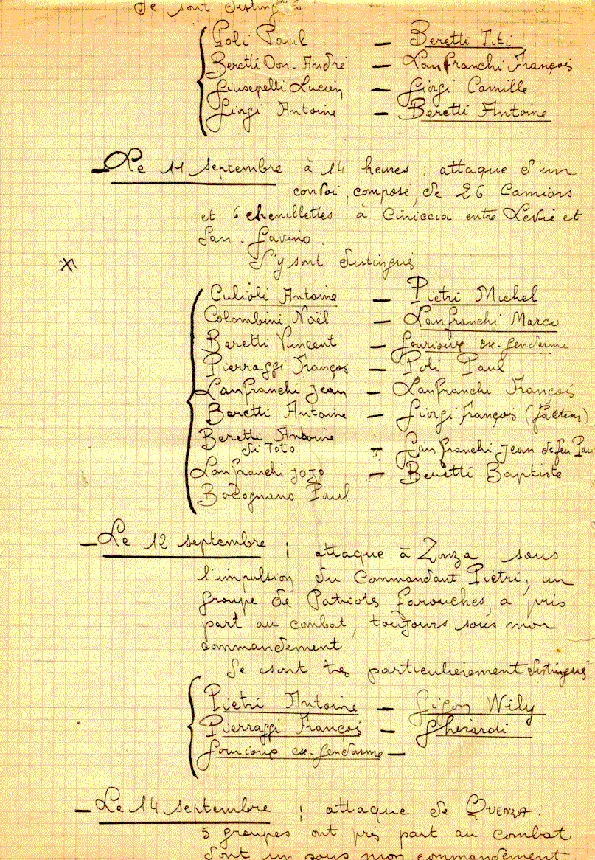 Se sont disting
Poli Paul — Beretti Titi
Beretti Don. André — Lanfranchi François
Giuseppelli Lucien — Giorgi Camille
Giorgi Antoine — Beretti Antoine
— Le 11 septembre à 14 heures, attaque d'un
convoi, composé, de 26 Camions
et 6 chenillettes à Ciniccia entre Levie et
San. Gavino.
S'y sont distingués
Culioli Antoine — Pietri Michel
Colombini Noël — Lanfranchi Marco
Beretti Vincent — ex-gendarme
Pierraggi François — Poli Paul
Lanfranchi Jean — Lanfranchi François
Beretti Antoine — Giorgi françois
Beretti Antoine
di Toto — Lanfranchi Jean de feu Pau
Lanfranchi Jojo — Beretti Baptiste
Bocognano Paul
— Le 12 septembre : attaque à Zonza sous
l'impulsion du Commandant Pietri, un
groupe de Patriotes farouches, a pris
part au combat, toujours sous mon
commandement
Se sont très particulièrement distingués
Pietri Antoine — Wily
Pierraggi François — Gherardi
ex-gendarme —
— Le 14 septembre : attaque de Quenza.
5 groupes ont pris part au combat
dont un sous mon commandement